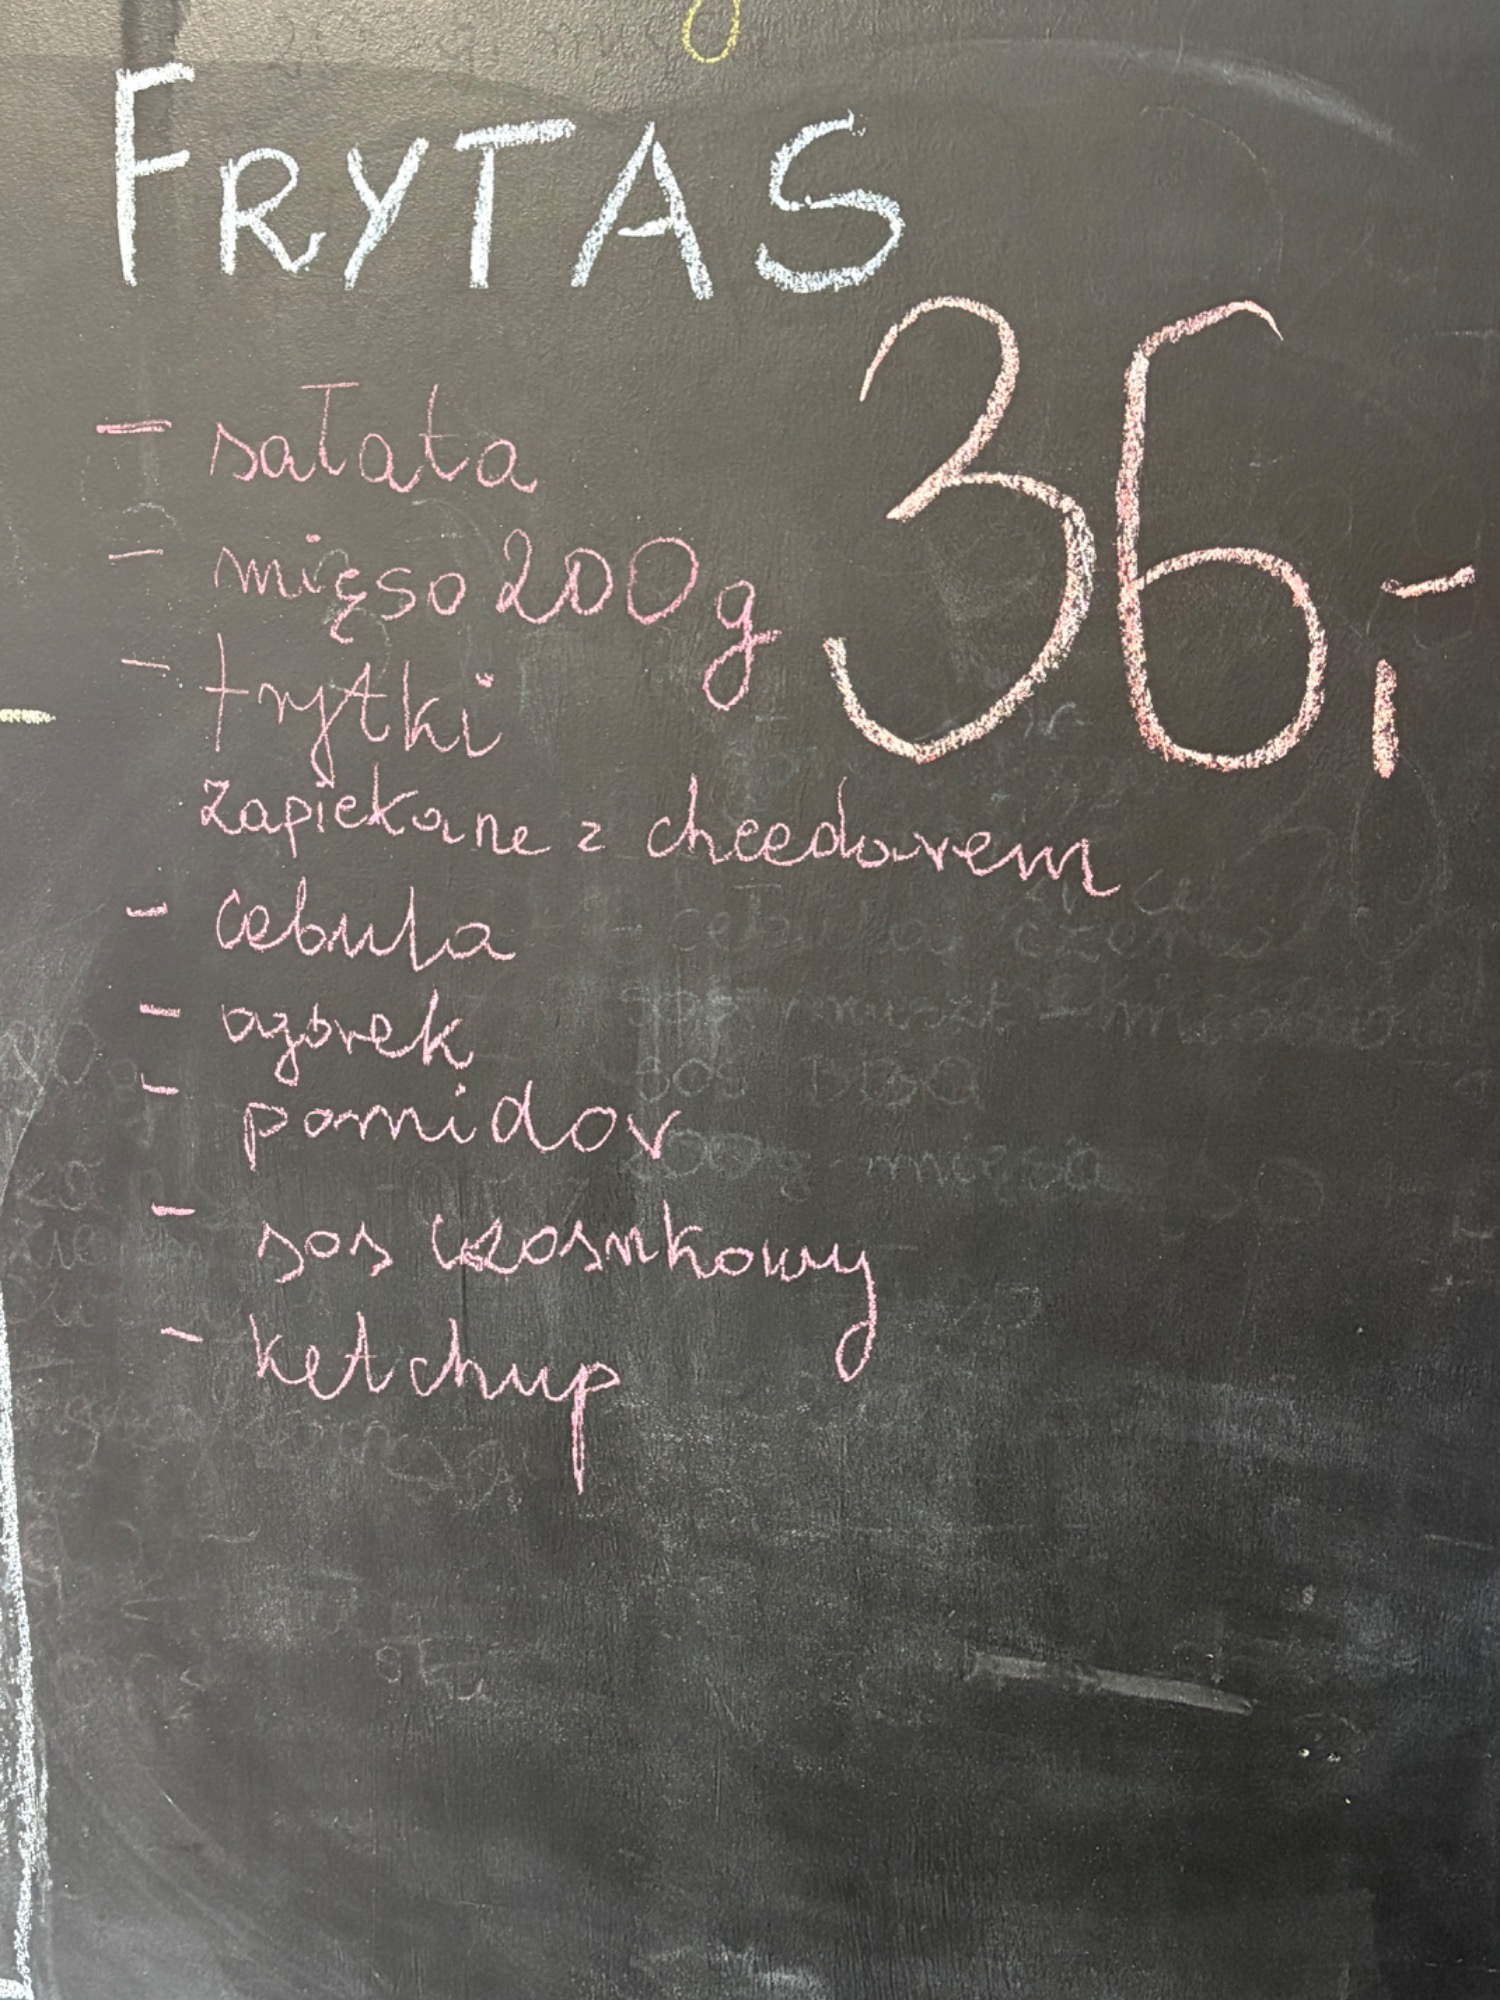 FRYTAS
36,-
- sałata
- mięso 200g
- frytki
zapiekane z cheedarem
- cebula
- ogórek
- pomidor
- sos czosnkowy
- ketchup